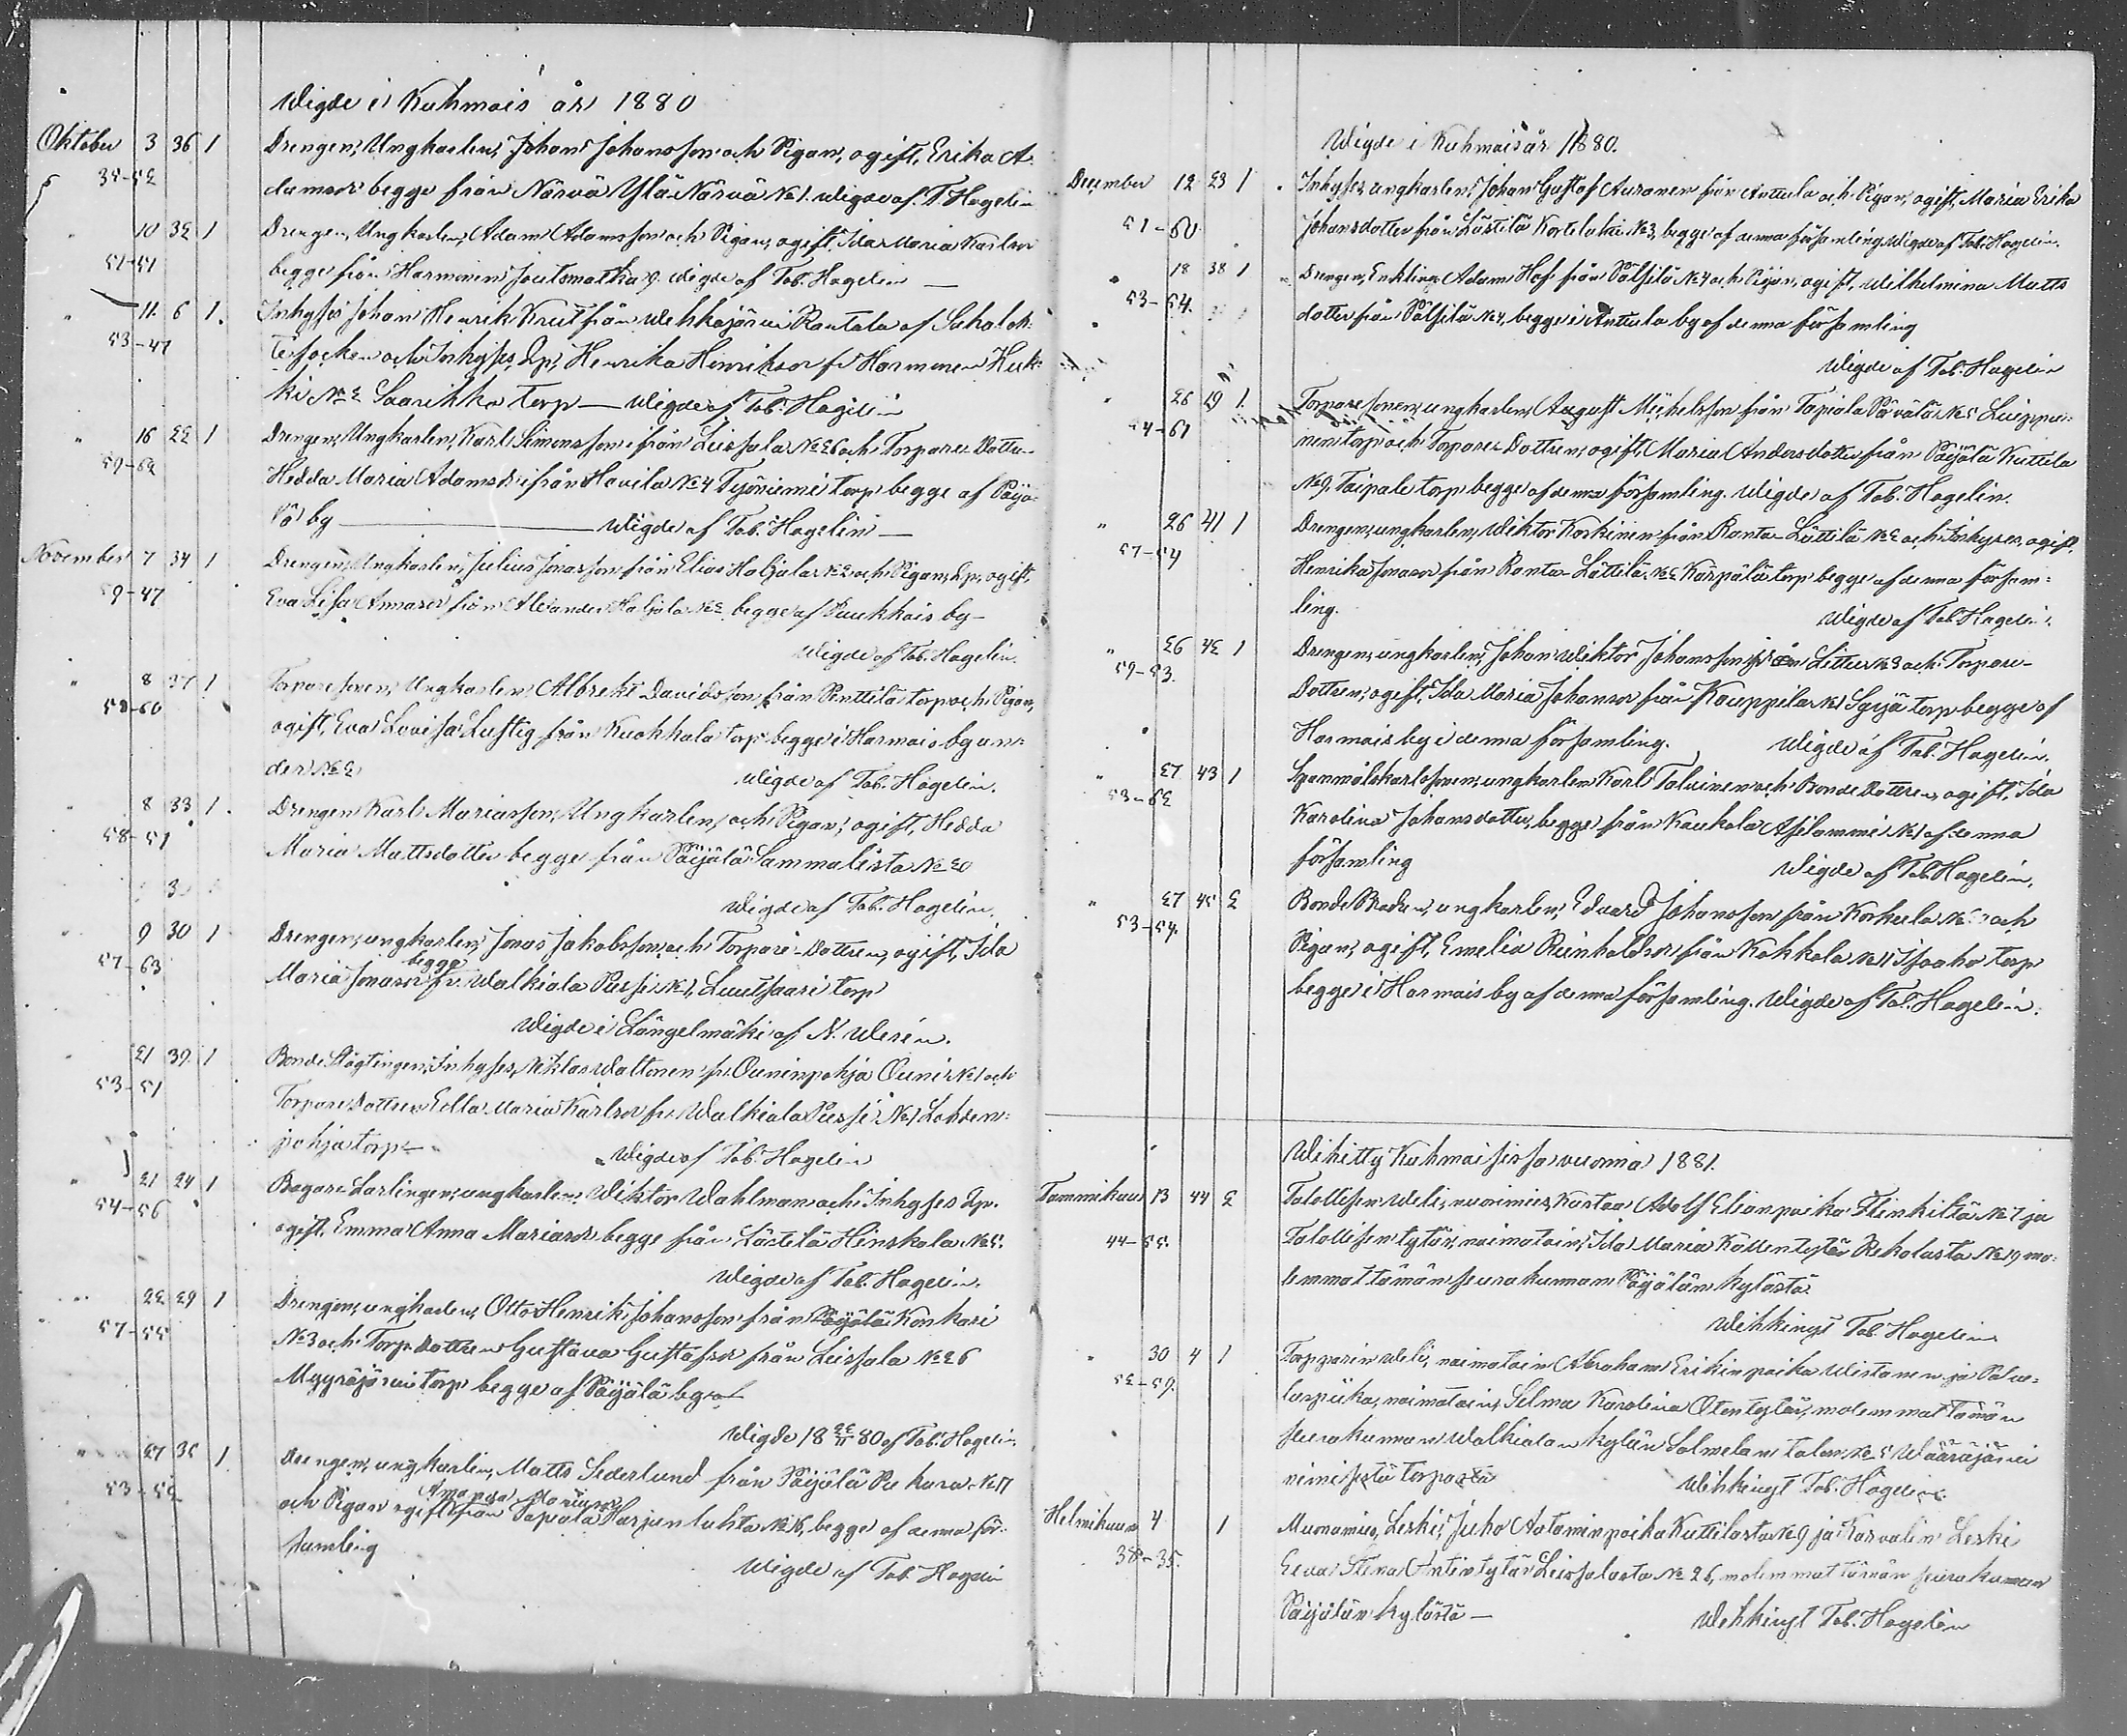 Wigde i Kuhmois år 1880
Oktober 3 36 1 Drengen, Ungkarlen, Johan Johansson och Pigan, ogift, Erika A-
damsdr begge från Närvä Ylä Närvä No 1. Wigde af T. Hagelin
" 10 32 1 Drengen, Ungkarlen, Adam Adamsson och Pigan, ogift, Ida Maria Karlsdr
51-51 begge från Harmonen Joutsmatka 9. Wigde af Tob. Hagelin —
" 11. 6 1. Inhyses Johan Henrik Knut från Wehkajärwi Rantala af
53-47 socken och Inhyses, Dp, Henrika Henriksdr fr Harmonen Huk-
ki No 2 Saarikka torp — Wigde af Tob. Hagelin
" 16 22 1 Drengen, Ungkarlen, Karl Simonsson från Leissala No 26 och Torpare Dottren
59-62 Hedda Maria Adamsdr från Hauila No 4 Tyõniemi torp begge af Päijä-
lä by — Wigde af Tob. Hagelin —
November 7 34 1 Drengen, Ungkarlen, Julius Jonasson från Elias Haljala No 2 och Pigan, Dp, ogift,
59-47 Eva Lisa Annasdr från Alexander Haljala No 2 begge af Puukkois by —
Wigde af Tob. Hagelin.
" 8 37 1 Torparesonen, Ungkarlen Albrekt Davidsson från Penttilä torp och Pigan,
58-60 ogift, Eva Lovisa Lustig från Kuokkala torp begge i Harmois by un-
der No 2 Wigde af Tob. Hagelin.
" 8 33 1. Drengen Karl Mariasson, Ungkarlen, och Pigan, ogift, Hedda
58-51 Maria Mattsdotter begge från Päijälä Sammalisto No 20
Wigde af Tob. Hagelin.
9 30 1 Drengen, ungkarlen, Jonas Jakobsson och Torpare-Dottren, ogift, Ida
57-63 Maria Jonasdr begge fr. Walkiala Pässi No 1, Luutsaari torp
Wigde i Längelmäki af N. Wesin.
" 21 39. 1 Bonde Slägtingen, Inhyses, Niklas Waltonen fr. Ouninpohja Ouni No 1 och
53-51 Torpare Dottren Edla Maria Karlsdr fr. Walkiala Pässi No 1 Lahden-
pohja torp — Wigde af Tob. Hagelin
" 21 24 1 Bagare Lärlingen, ungkarlen, Wiktor Wahlman och Inhyses Dp.
54-56 ogift, Emma Anna Mariasdr begge från Lästilä Heinskala No 5.
Wigde af Tob. Hagelin.
" 22 29 1 Drengen, ungkarlen, Otto Henrik Johansson från Päijälä Konkari
57-55 No 3 och Torp. Dottren Gustava Gustafsdr från Leissala No 26
Myyräjärwi torp begge af Päijälä by
Wigde 18 22/11 80 af Tob. Hagelin.
" 27 35 1. Drengen, ungkarlen, Matts Sederlund från Päijälä No 17
53-52 och Pigan ogift Amanda från Tapiala Harjunluhta No 15, begge af denna för-
samling Wigde af Tob. Hagelin
Wigde i Kuhmois år 1880.
December 12 23 1 Inhyses, ungkarlen, Johan Gustaf Auranen från Anttula och Pigan, ogift, Maria Erika
51-60 Johansdotter från Lästilä Kortelahti No 3, begge af denna församling. Wigde af Tob. Hagelin.
" 18 38 1 Drengen, Enkling, Adam Hof från Pälsilä No 4 och Pigan, ogift, Wilhelmina Matts
53-54. dotter från Pälsilä No 4, begge i Anttula by af denna församling
Wigde af Tob. Hagelin
" 26 19 1. Torparesonen, ungkarlen, August Michelsson från Tapiala Päivälä No 5 Leppä-
54-61 nen torp och Torpare Dottren, ogift, Maria Andersdotter från Päijälä Kuttila
No 9. Taipale torp begge af denna församling. Wigde af Tob. Hagelin.
" 26 41 1 Drengen, ungkarlen, Wiktor Korkinen från Ranta-Lättilä No 2 och Inhyses, ogift,
57-54 Henrika Jonasdr från Ranta-Lättilä No 2 Kärpälä torp begge af denna försam-
ling. Wigde af Tob. Hagelin.
" 26 42 1 Drengen, ungkarlen, Johan Wiktor Johansson från Littu No 3 och Torpare-
59-53. Dottren, ogift, Ida Maria Johansdr från Kauppila No 1 Syrjä torp begge af
Harmois by i denna församling. Wigde af Tob. Hagelin.
" 27 43 1 Spannmålskarlssonen, ungkarlen Karl Taluinen och Bonde Dottren, ogift, Ida
53-62 Karolina Johansdotter, begge från Kaukola Asilammi No 1 af denna
församling Wigde af Tob. Hagelin.
" 27 45 2 Bonde Brodren, ungkarlen, Edvard Johansson från Korkula No och
53-54. Pigan, ogift, Emelia Reinholdsdr från Kokkala No 11 Isoaho torp
begge i Harmois by af denna församling. Wigde af Tob. Hagelin.
Wihitty Kuhmoisissa vuonna 1881.
Tammikuu 13 44 2 Talollisen weli, nuorimies, Kustaa Adolf Elianpoika Flinkiltä No 7 ja
44-55. Talollisen tytär, naimatoin, Ida Maria Kallentytär Rekolasta No 19 mo-
lemmat tämän seurakunnan Päijälän kylästä.
Wihkinyt Tob. Hagelin
" 30 4 1 Torpparin weli, naimatoin Abraham Erikinpoika Wistanen ja Palwe-
52-59. luspiika, naimatoin, Selma Karolina Otontytär, molemmat tämän
seurakunnan Walkialan kylän Salmelan talon No 5 Wääräjärwi
nimisestä torpasta Wihkinyt Tob. Hagelin.
Helmikuun 4 1 Muonamies, Leski, Juho Aataminpoika Kuttilasta No 9 ja Karvalin Leski
38-35. Eeva Stina Antintytär Leissalasta No 26, molemmat tämän seurakunnan
Päijälän kylästä — Wihkinyt Tob. Hagelin